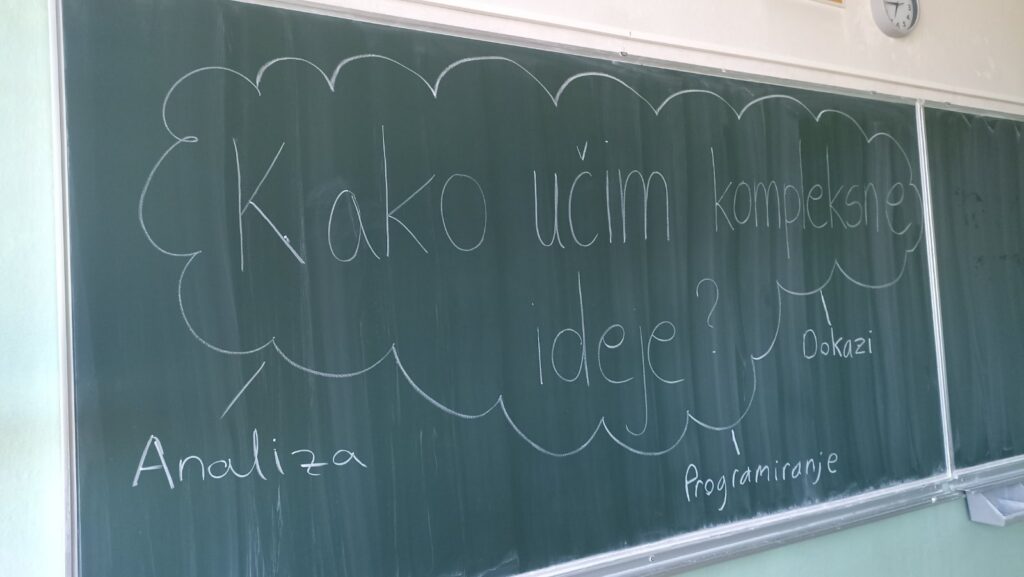 Kako učim kompleksne
ideje?
Dokazi
Analiza
Programiranje